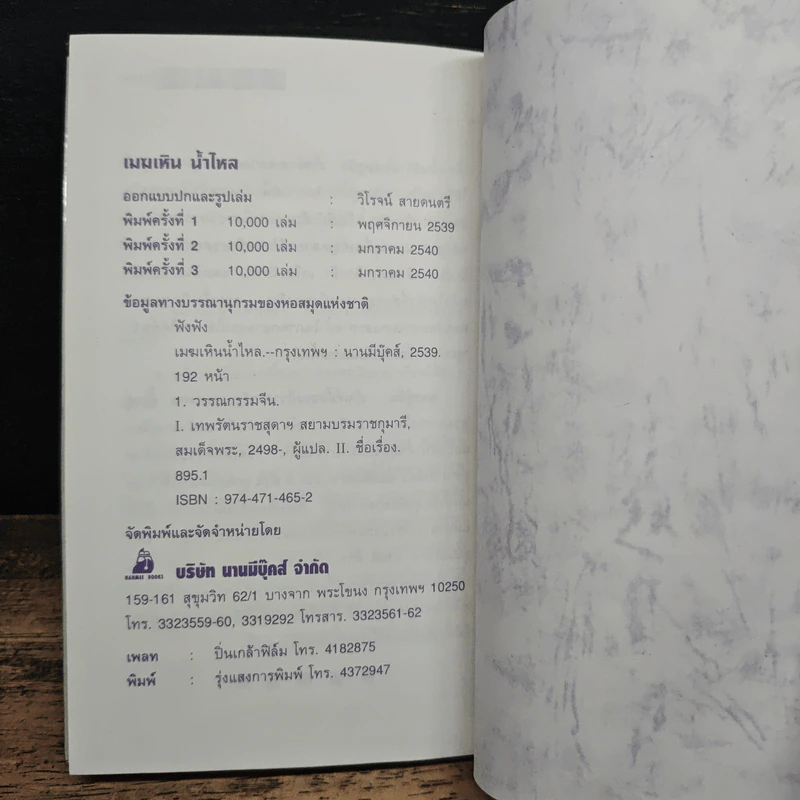 เมฆเหิน น้ำไหล
ออกแบบปกและรูปเล่ม : วิโรจน์ สายดนตรี
พิมพ์ครั้งที่ 1 10,000 เล่ม : พฤศจิกายน 2539
พิมพ์ครั้งที่ 2 10,000 เล่ม : มกราคม 2540
พิมพ์ครั้งที่ 3 10,000 เล่ม : มกราคม 2540
ข้อมูลทางบรรณานุกรมของหอสมุดแห่งชาติ
ฟังฟัง
เมฆเหินน้ำไหล.--กรุงเทพฯ : นานมีบุ๊คส์, 2539.
192 หน้า
1. วรรณกรรมจีน.
I. เทพรัตนราชสุดาฯ สยามบรมราชกุมารี,
สมเด็จพระ, 2498-, ผู้แปล. II. ชื่อเรื่อง.
895.1
ISBN : 974-471-465-2
จัดพิมพ์และจัดจำหน่ายโดย
NANMEE BOOKS
บริษัท นานมีบุ๊คส์ จำกัด
159-161 สุขุมวิท 62/1 บางจาก พระโขนง กรุงเทพฯ 10250
โทร. 3323559-60, 3319292 โทรสาร. 3323561-62
เพลท : ปิ่นเกล้าฟิล์ม โทร. 4182875
พิมพ์ : รุ่งแสงการพิมพ์ โทร. 4372947